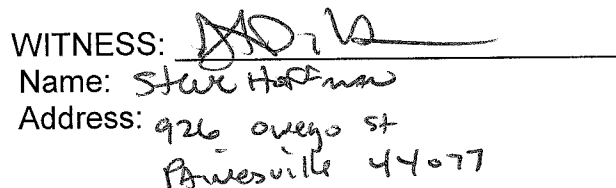 WITNESS:
Name: Steve Hoffman
Address: 926 owego st
Painesville 44077